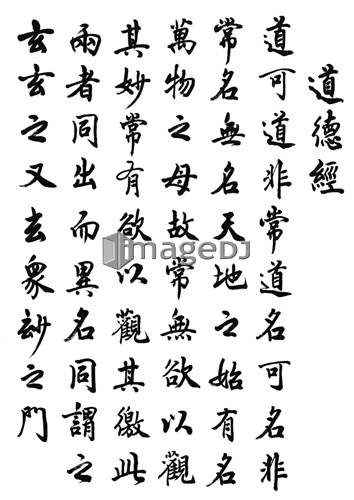 道德經
道可道非常道名可名非
常名無名天地之始有名
萬物之母故常無欲以觀
其妙常有欲以觀其徼此
兩者同出而異名同謂之
玄玄之又玄眾妙之門
imageDJ